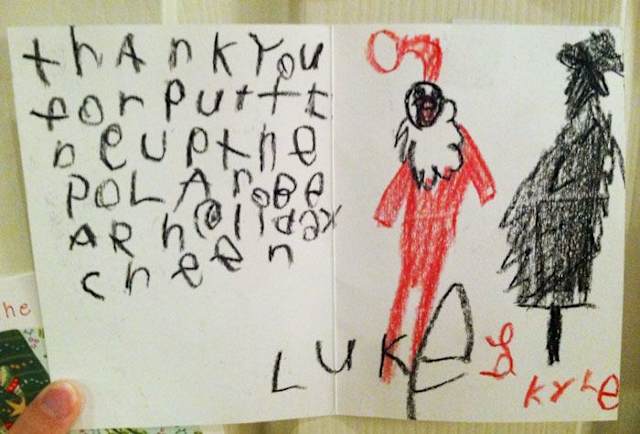 thAnk You
for puttt
ne up the
POLAr BeBe
AR holiday
cheer
LUKE &
KYLE
he